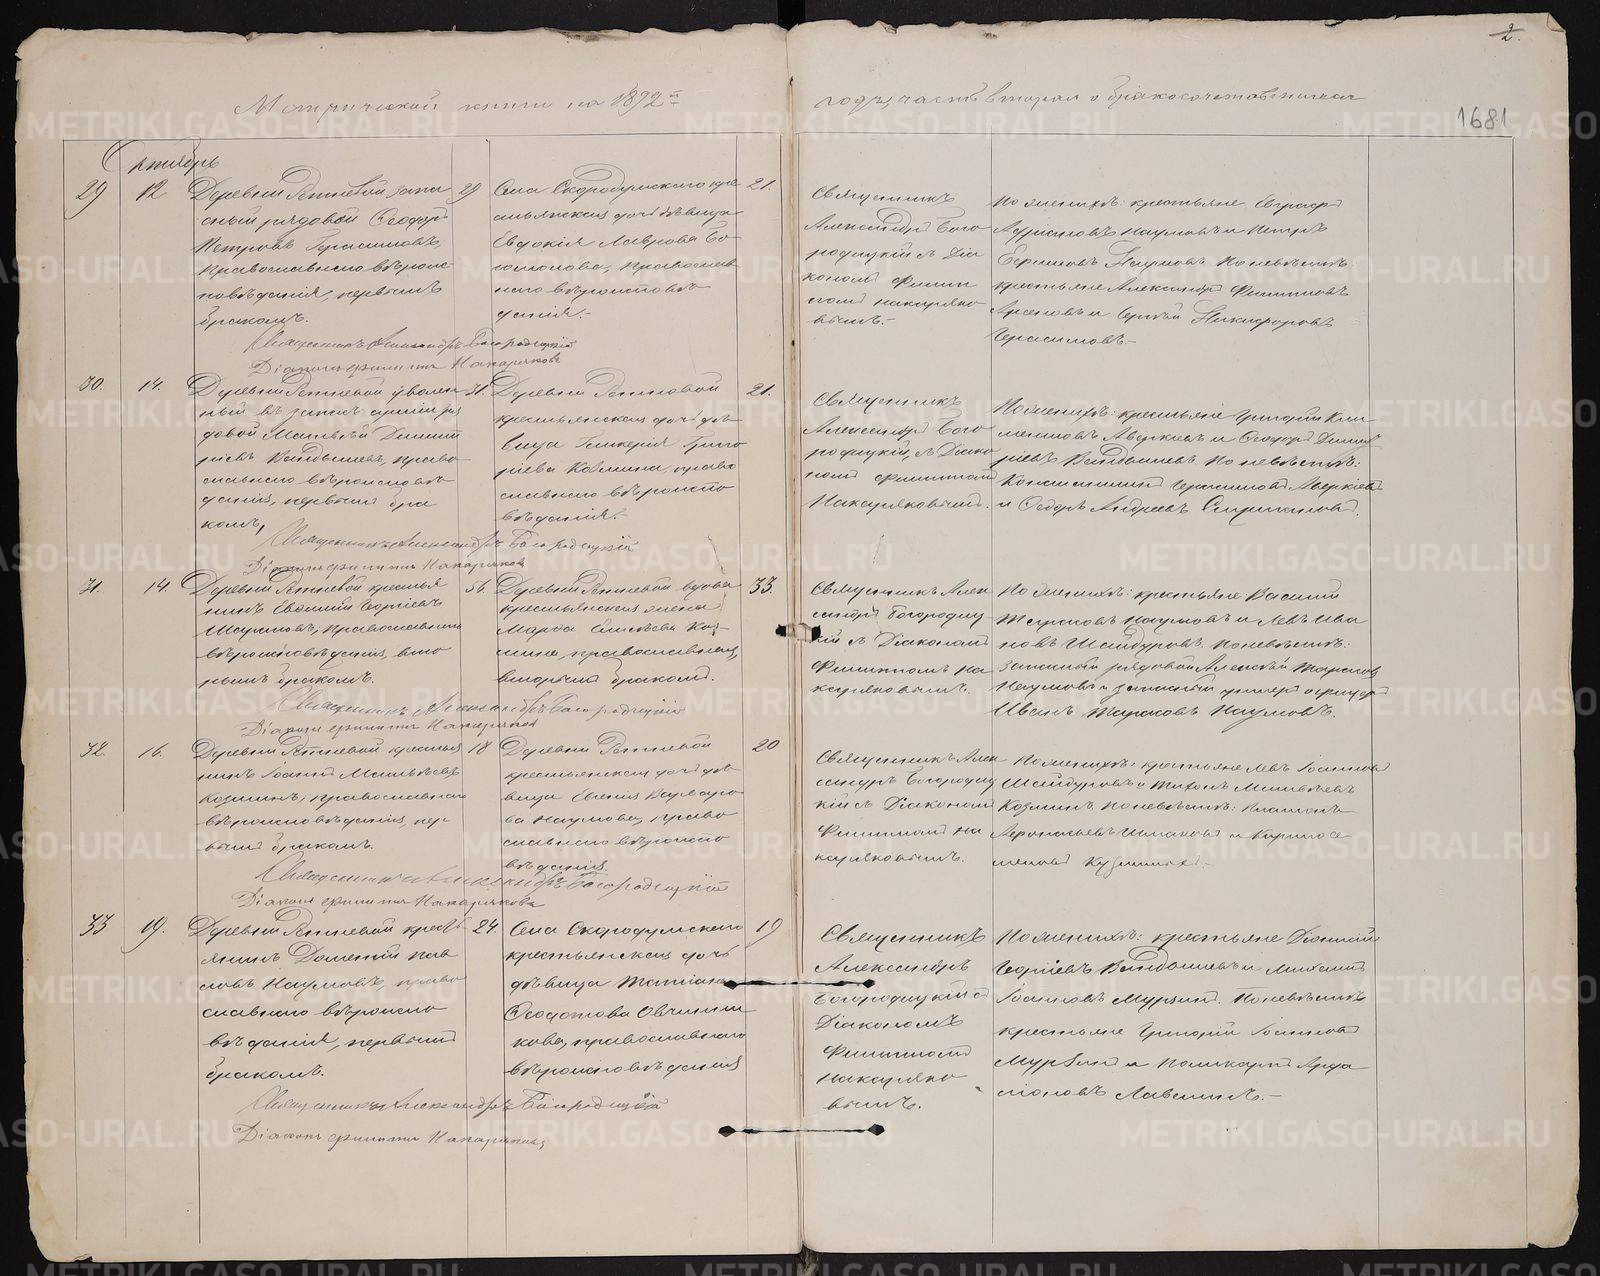 2.
Метрической книги на 1892 й
годъ, часть вторая о бракосочетавшихся
1681
Октябрь
29
12
Деревни Ретневой запа
сный рядовой Ѳеодоръ
Петровъ Герасимовъ,
православнаго вѣроис-
повѣданія, первымъ
бракомъ.
29
Села Скородумскаго кре
стьянская дочь дѣвица
Евдокія Лаврова
православ
наго вѣроисповѣ
данія.-
21.
Священникъ
Александръ Бого
родицкій съ Діа
кономъ Филип
помъ Накаряко
вымъ.-
По женихѣ: крестьяне
Адріановъ Наумовъ и Петръ
Наумовъ По невѣстѣ:
крестьяне Александръ Филипповъ
и Сергѣй Никифоровъ
Герасимовъ.-
Священникъ Александръ Богородицкій
Діаконъ Филиппъ Накаряковъ
30.
14.
Деревни Ретневой уволен
ный въ запасъ арміи ря
довой Матвѣй Димит
ріевъ право
славнаго вѣроисповѣ
данія, первымъ бра
комъ,
31.
Деревни Ретневой
крестьянская дочь дѣ
вица Гликерія Григо
ріева Козмина, право
славнаго вѣроиспо
вѣданія.-
21.
Священникъ
Александръ Бого
родицкій, съ Діако
номъ Филиппомъ
Накаряковымъ.
По женихѣ: крестьяне Григорій Кли
ментовъ Аверкіевъ и Ѳеодоръ Димит
ріевъ По невѣстѣ:
Константинъ Герасимовъ Аверкіевъ
и Ѳедоръ Андреевъ
Священникъ Александръ Богородицкій
Діаконъ Филиппъ Накаряковъ
31.
14.
Деревни Ретневой крестья
нинъ Евѳимій Георгіевъ
православнаго
вѣроисповѣданія, вто
рымъ бракомъ.
56.
Деревни Ретневой вдова
крестьянская жена
Марѳа Елисѣева Коз-
мина, православная,
вторымъ бракомъ.
33.
Священникъ Алек
сандръ Богородиц
кій съ Діакономъ
Филиппомъ На
каряковымъ.
По женихѣ: крестьяне Василій
Тарасовъ Наумовъ и Левъ Ива
новъ Шайдуровъ. По невѣстѣ:
запасный рядовой Алексѣй Тарасов
Наумовъ и запасный унтеръ офицеръ
Иванъ Тарасовъ Наумовъ.
Священникъ Александръ Богородицкій
Діаконъ Филиппъ Накаряковъ
32.
16.
Деревни Ретневой крестья
нинъ Іоаннъ Матвѣевъ
Козминъ, православнаго
вѣроисповѣданія, пер-
вымъ бракомъ.
18
Деревни Ретневой
крестьянская дочь дѣ
вица Евгенія
Наумова, право
славнаго вѣроиспо
вѣданія.
20
Священникъ Алек
сандръ Богородиц
кій съ Діакономъ
Филиппомъ На
каряковымъ.
По женихѣ: крестьяне Левъ Іоанновъ
Шайдуровъ и Тихонъ Матвѣевъ
Козминъ По невѣстѣ:
Священникъ Александръ Богородицкій
Діаконъ Филиппъ Накаряковъ
33
19.
Деревни Ретневой кресть
янинъ Дометій Пав
ловъ Наумовъ, право
славнаго вѣроиспо
вѣданія, первымъ
бракомъ.
24.
Села Скородумскаго
крестьянская дочь
дѣвица Татіана
Ѳедотова Овчинни
кова, православнаго
вѣроисповѣданія
19
Священникъ
Александръ
Богородицкій съ
Діакономъ
Филиппомъ
Накаряко
вымъ.
По женихѣ: крестьяне Діонисій
Георгіевъ и Михаилъ
Іоанновъ Мурзинъ. По невѣстѣ
крестьяне Григорій Іоанновъ
Мурзинъ и Поликарпъ
Священникъ Александръ Богородицкій
Діаконъ Филиппъ Накаряковъ
METRIKI.GASO-URAL.RU